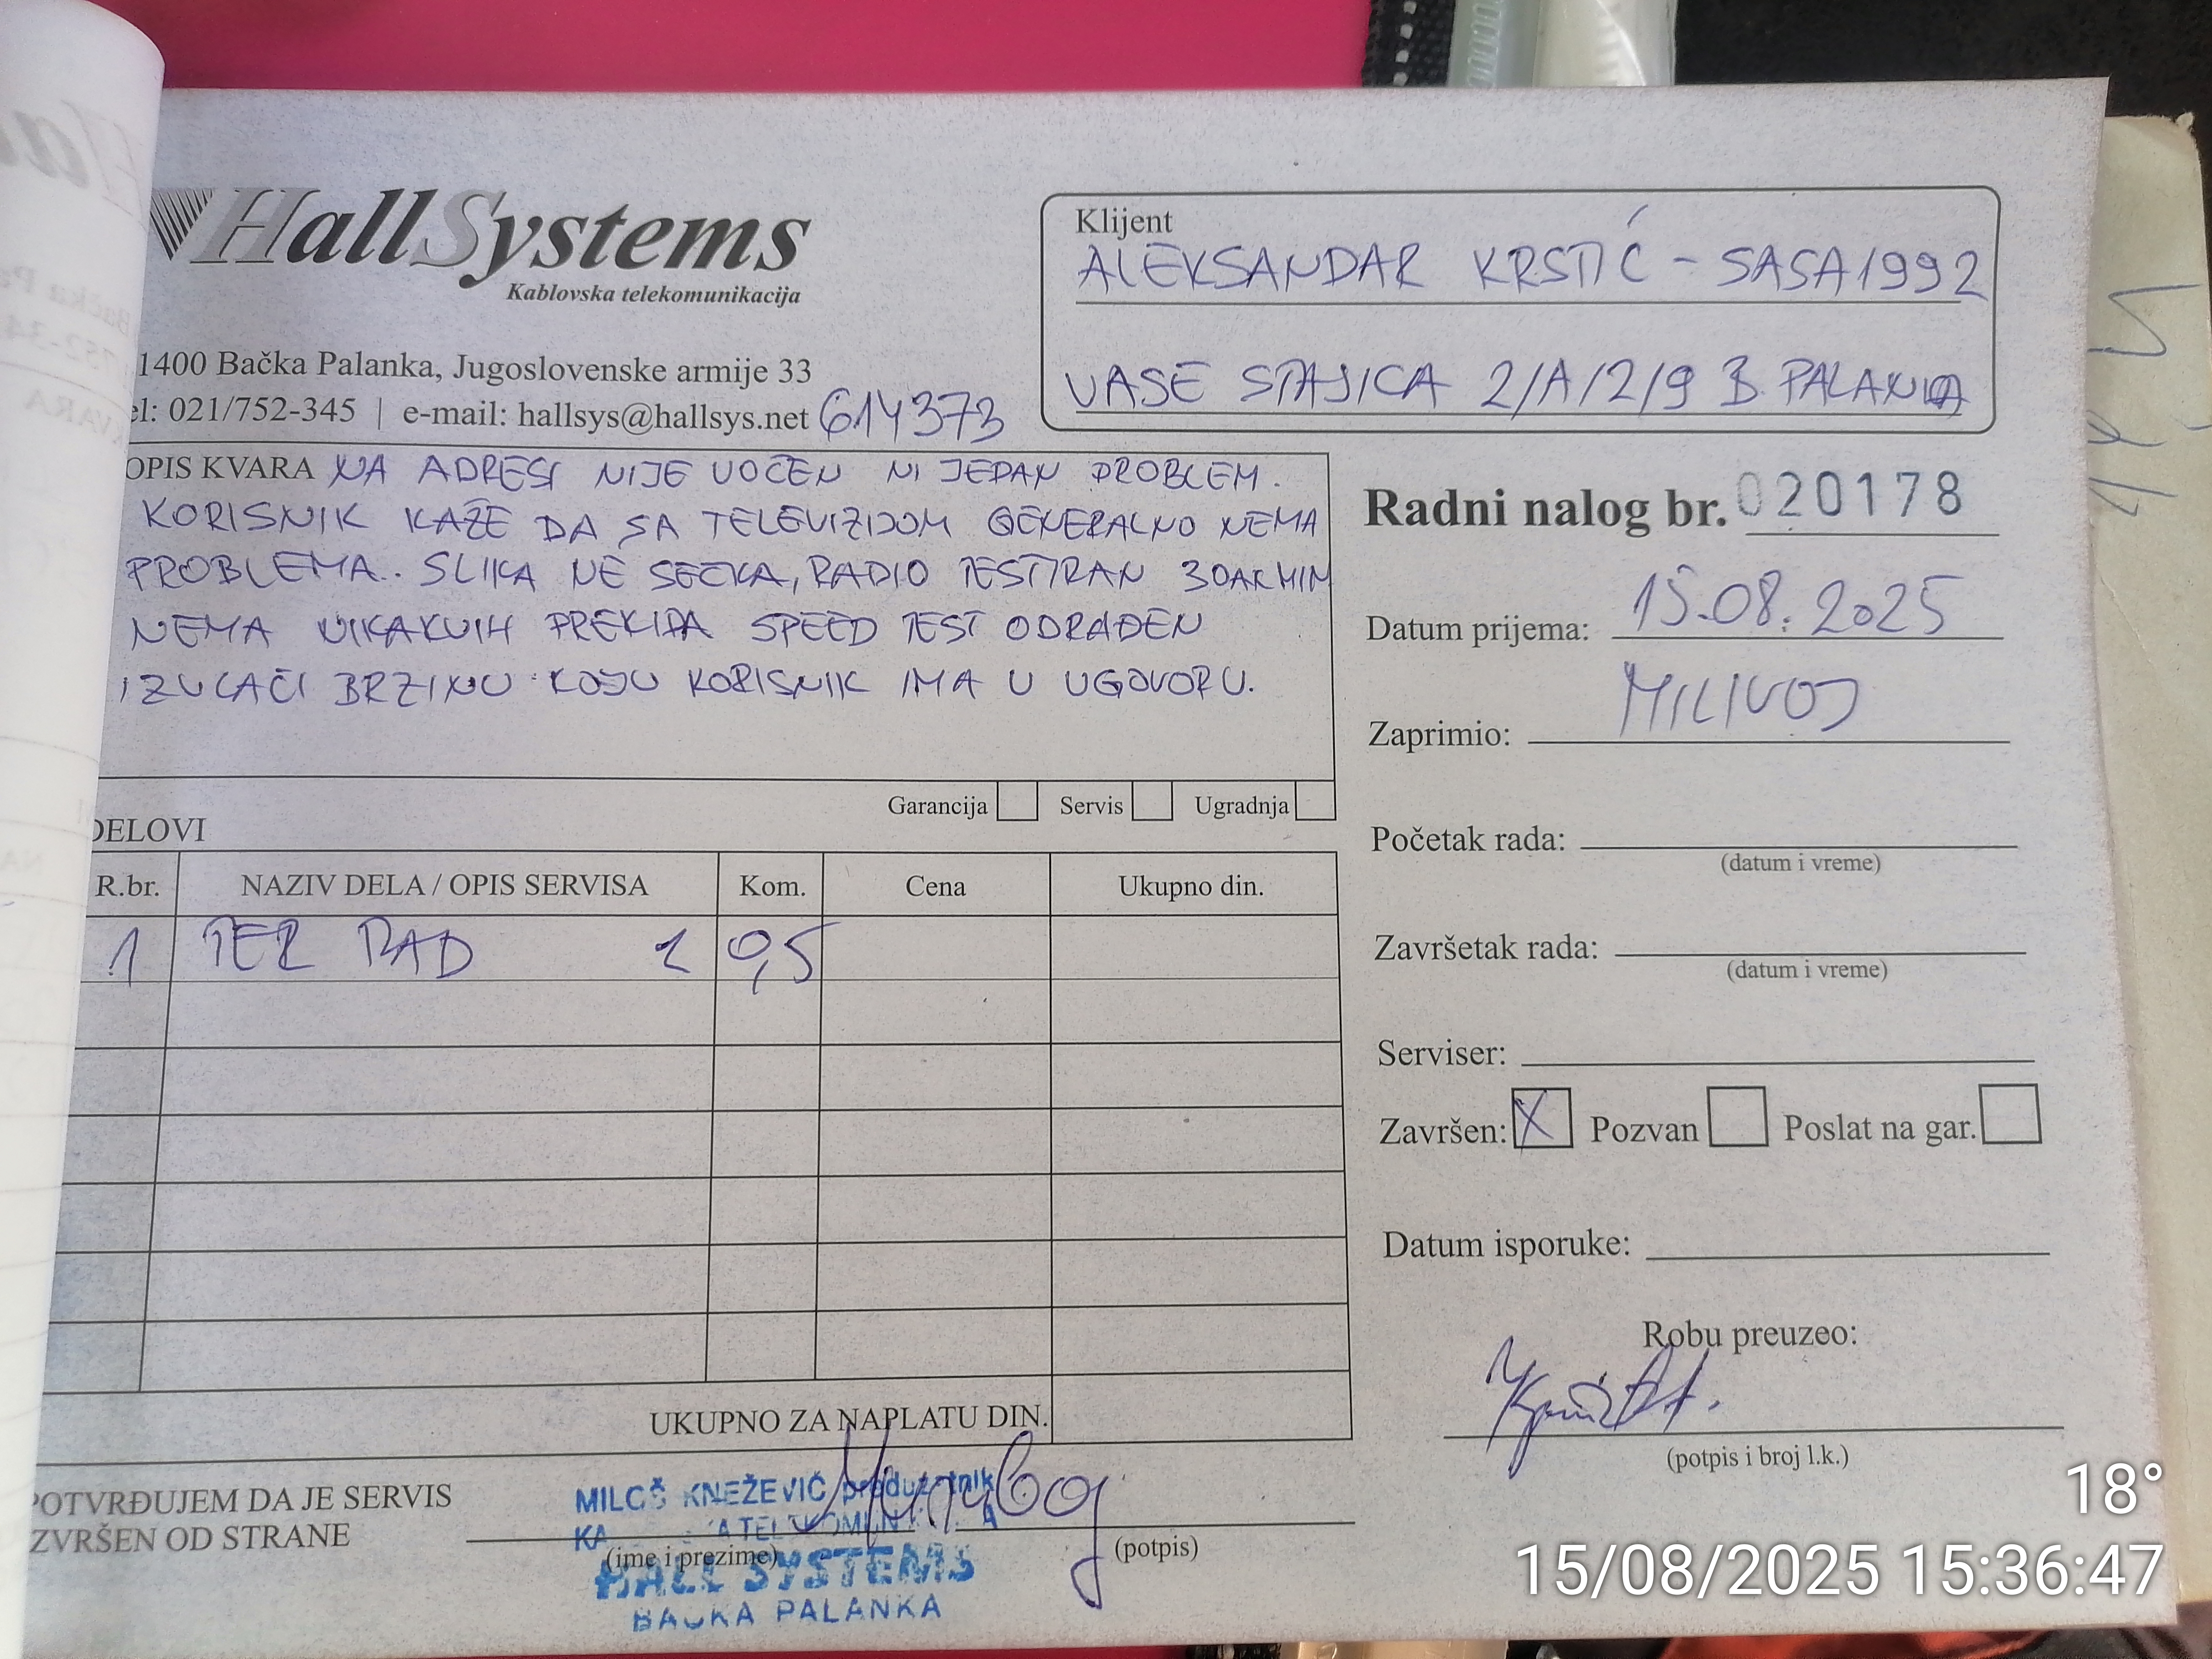 HallSystems
Kablovska telekomunikacija
1400 Bačka Palanka, Jugoslovenske armije 33
el: 021/752-345 | e-mail: hallsys@hallsys.net 614373
Klijent
ALEKSANDAR KRSTIĆ - SASA1992
VASE STAJICA 2/A/2/9 B. PALANKA
OPIS KVARA NA ADRESI NIJE UOČEN NI JEDAN PROBLEM.
KORISNIK KAŽE DA SA TELEVIZIJOM GENERALNO NEMA
PROBLEMA.. SLIKA NE SECKA, RADIO TESTIRAN 30AK MIN
NEMA NIKAKVIH PREKIDA SPEED TEST ODRAĐEN
IZVLAČI BRZINU KOJU KORISNIK IMA U UGOVORU.
Radni nalog br. 020178
Datum prijema: 15.08.2025
Zaprimio: MILIVOJ
Početak rada:
(datum i vreme)
Završetak rada:
(datum i vreme)
Serviser:
Završen: X Pozvan Poslat na gar.
Datum isporuke:
Robu preuzeo:
(potpis i broj l.k.)
Garancija Servis Ugradnja
DELOVI
R.br. NAZIV DELA / OPIS SERVISA Kom. Cena Ukupno din.
1 TER RAD 1 0,5
UKUPNO ZA NAPLATU DIN.
POTVRĐUJEM DA JE SERVIS
IZVRŠEN OD STRANE
(ime i prezime)
(potpis)
MILOŠ KNEŽEVIĆ preduzetnik
HALL SYSTEMS
BAČKA PALANKA
18°
15/08/2025 15:36:47